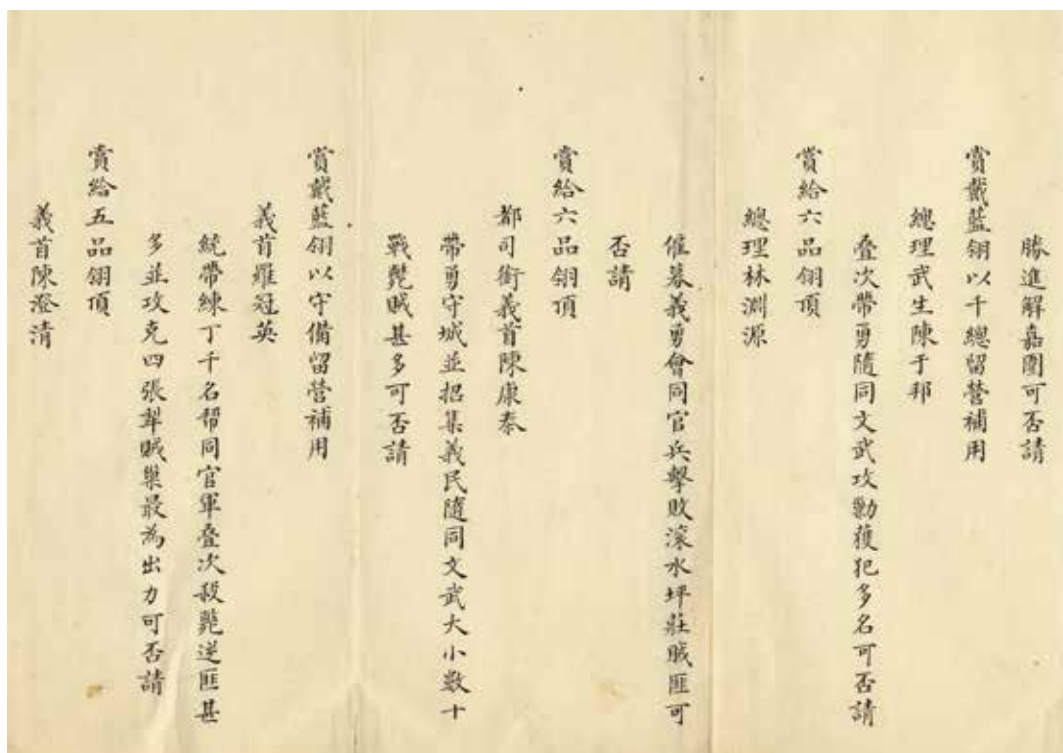 勝進解嘉圍可否請
賞戴藍翎以千總留營補用
總理武生陳于邦
叠次帶勇隨同文武攻勦獲犯多名可否請
賞給六品翎頂
總理林淵源
催募義勇會同官兵擊敗滾水坪莊賊匪可
否請
賞給六品翎頂
都司銜義首陳康泰
帶勇守城並招集義民隨同文武大小數十
戰斃賊甚多可否請
賞戴藍翎以守備留營補用
義首羅冠英
統帶練丁千名帮同官軍叠次殺斃逆匪甚
多並攻克四張犂賊巢最為出力可否請
賞給五品翎頂
義首陳澄清